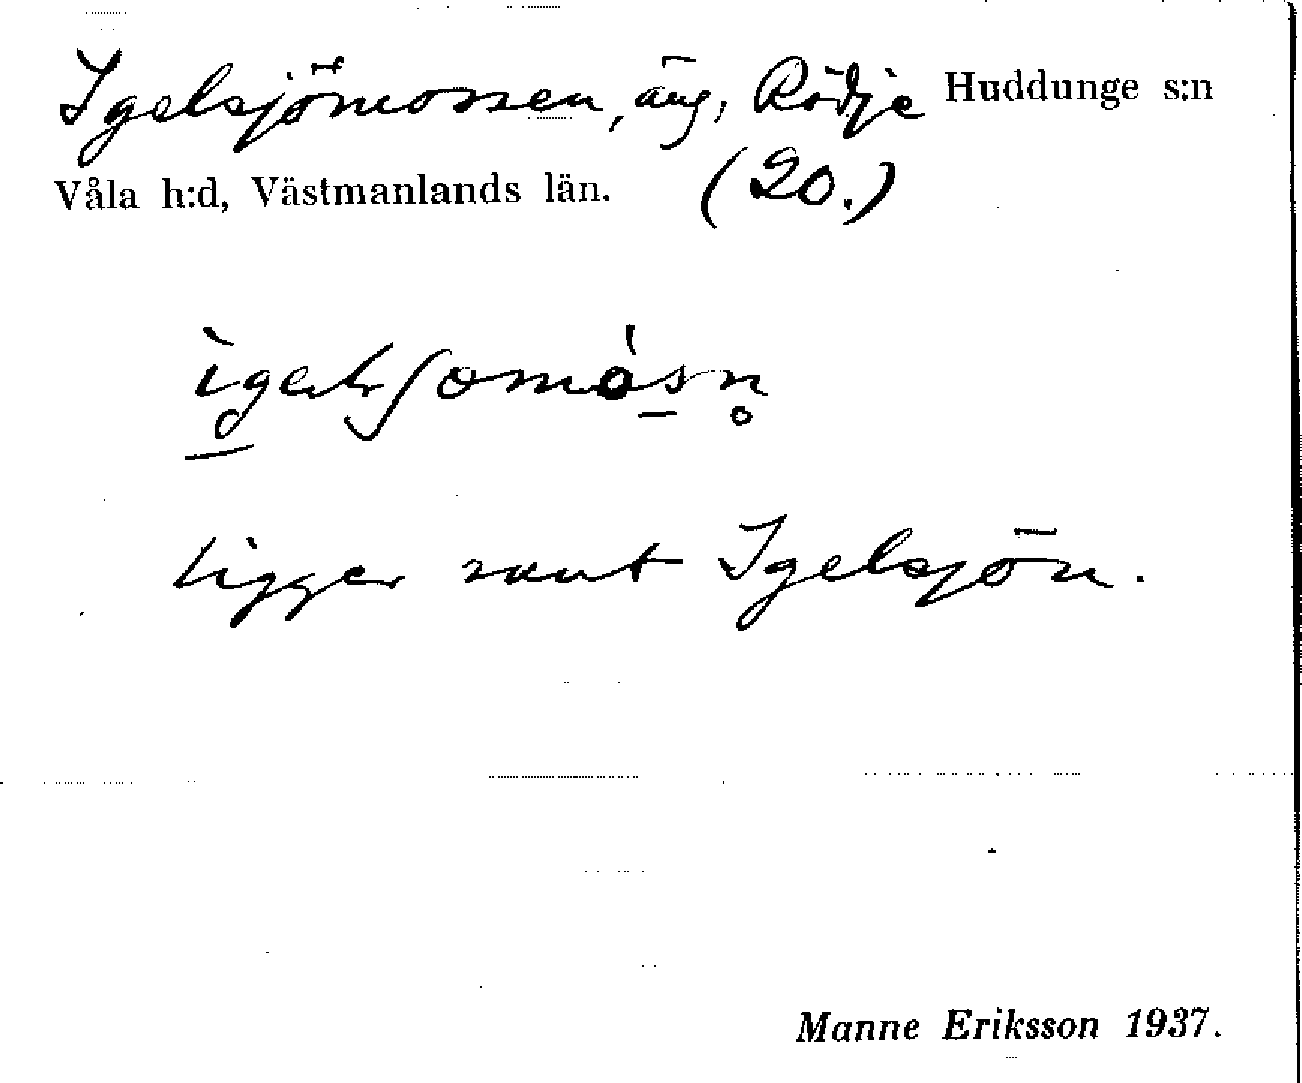 Igelsjömossen, äng, Rödje Huddunge s:n
Våla h:d, Västmanlands län. (20.)
ligger runt Igelsjön.
Manne Eriksson 1937.